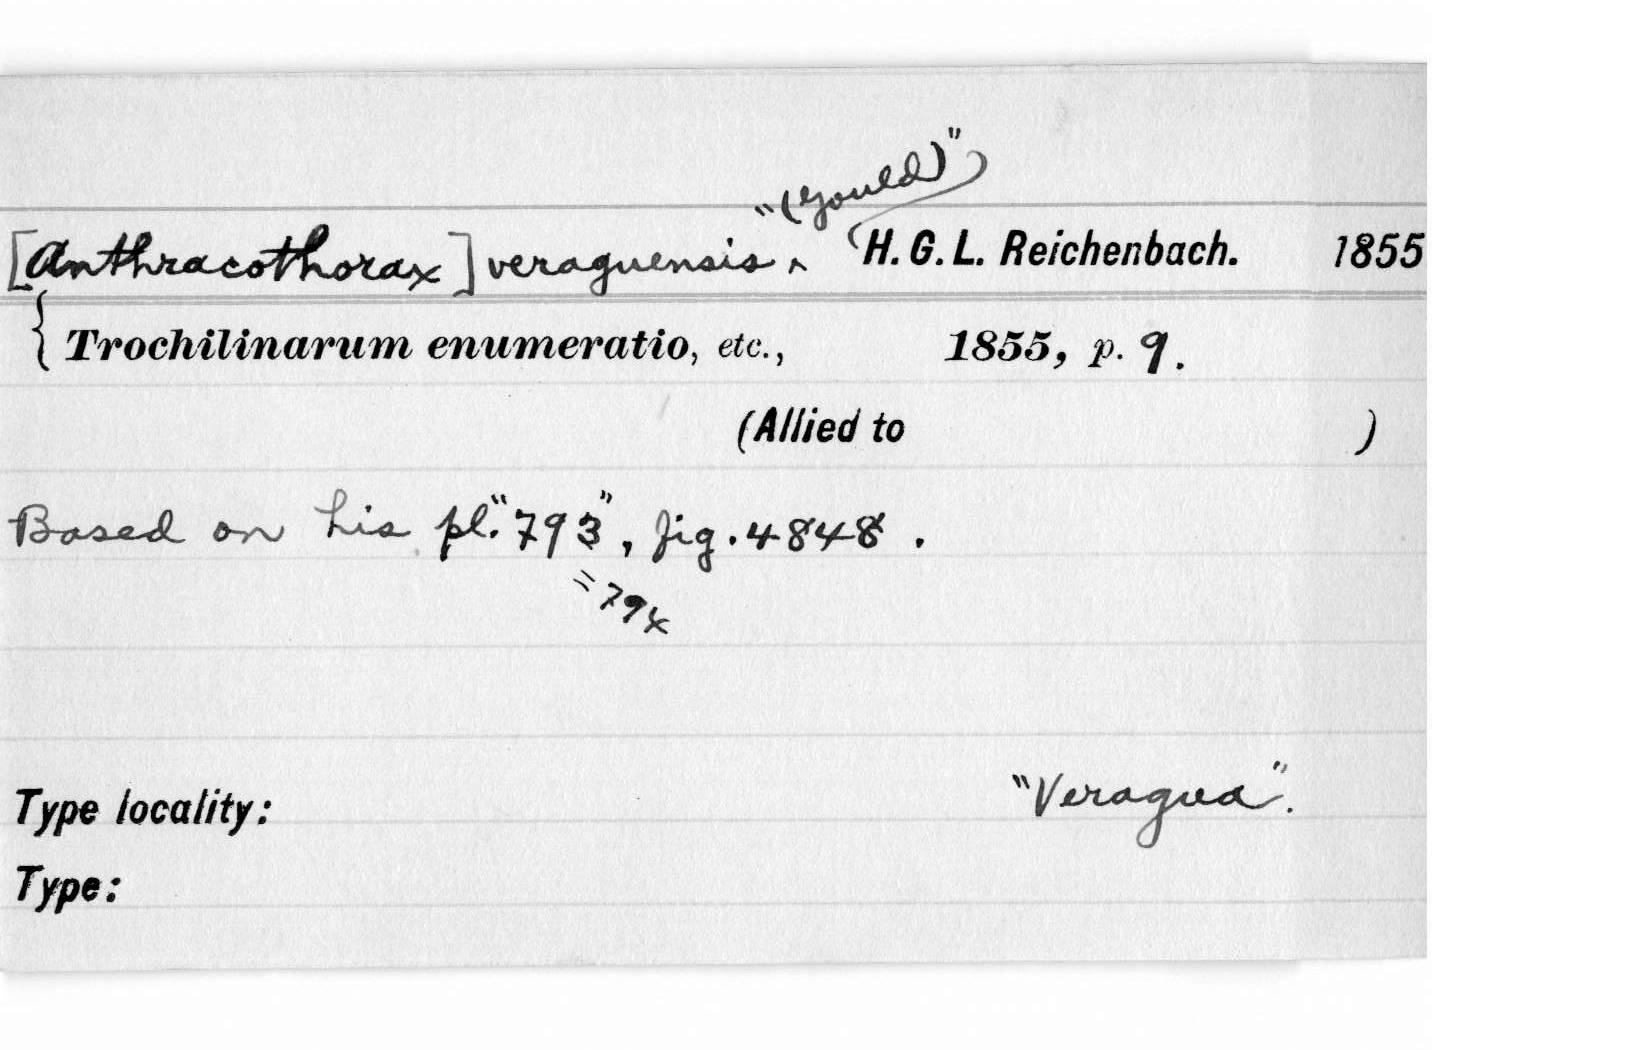 "(Gould)"
[Anthracothorax] veraguensis ^ H. G. L. Reichenbach. 1855
{ Trochilinarum enumeratio, etc., 1855, p. 9.
(Allied to )
Based on his pl. "793", fig. 4848.
=794
Type locality: "Veragua".
Type: